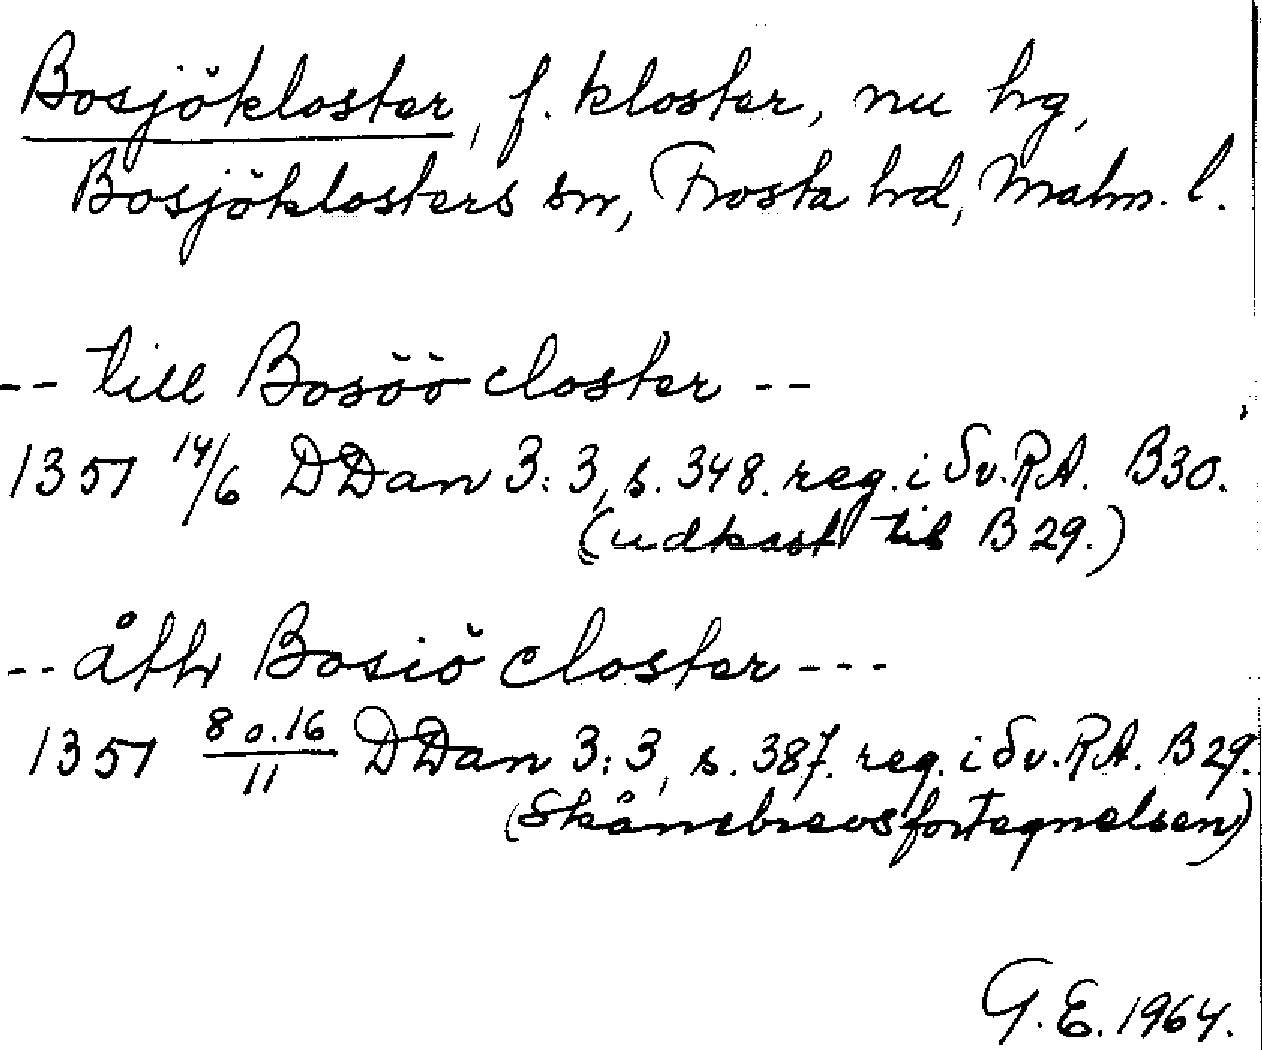 Bosjökloster, f. kloster, nu hg,
Bosjöklosters sn, Frosta hd, Malm. l.
-- till Bosöö closter --
1351 14/6 DDan 3:3, s. 348. reg. i Sv. RA. B30.
(udkast til B 29.)
-- åth Bosiö closter ---
1351 8 o. 16/11 DDan 3:3, s. 387. reg. i Sv. RA. B29.
(Skånebrevsfortegnelsen)
G. E. 1964.